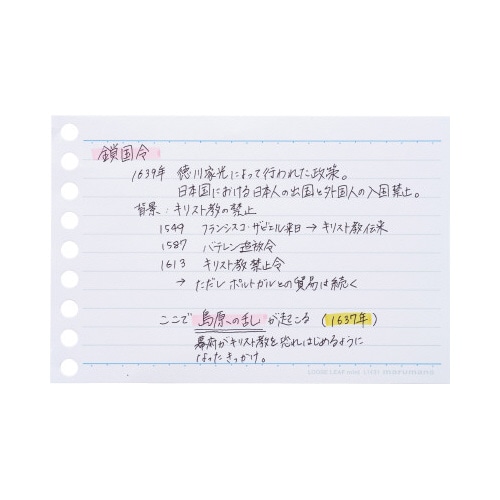 鎖国令
1639年 徳川家光によって行われた政策。
日本国における日本人の出国と外国人の入国禁止。
背景：キリスト教の禁止
1549 フランシスコ・ザビエル来日 → キリスト教伝来
1587 バテレン追放令
1613 キリスト教禁止令
→ ただし ポルトガルとの貿易は続く
ここで 島原の乱 が起こる (1637年)
幕府がキリスト教を恐れはじめるように
なったきっかけ。
LOOSE LEAF mini